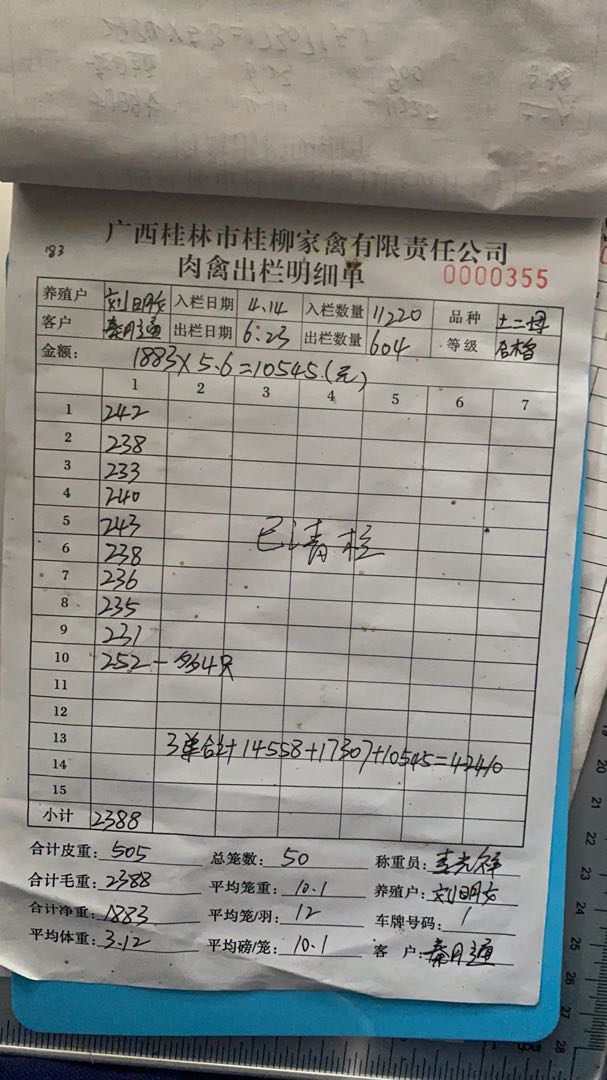 183
广西桂林市桂柳家禽有限责任公司
肉禽出栏明细单 0000355
养殖户 刘明 入栏日期 4.14 入栏数量 11220 品种 土二
客户 秦月通 出栏日期 6.23 出栏数量 604 等级 合格
金额: 1883×5.6=10545(元)
1 2 3 4 5 6 7
1 242
2 238
3 233
4 240
5 243
已清栏
6 238
7 236
8 235
9 231
10 252 4只
11
12
13 3单合计 14558+17307+10545=42410
14
15
小计 2388
合计皮重: 505 总笼数: 50 称重员:
合计毛重: 2388 平均笼重: 10.1 养殖户: 刘明
合计净重: 1883 平均笼/羽: 12 车牌号码: 1
平均体重: 3.12 平均磅/笼: 10.1 客 户: 秦月通